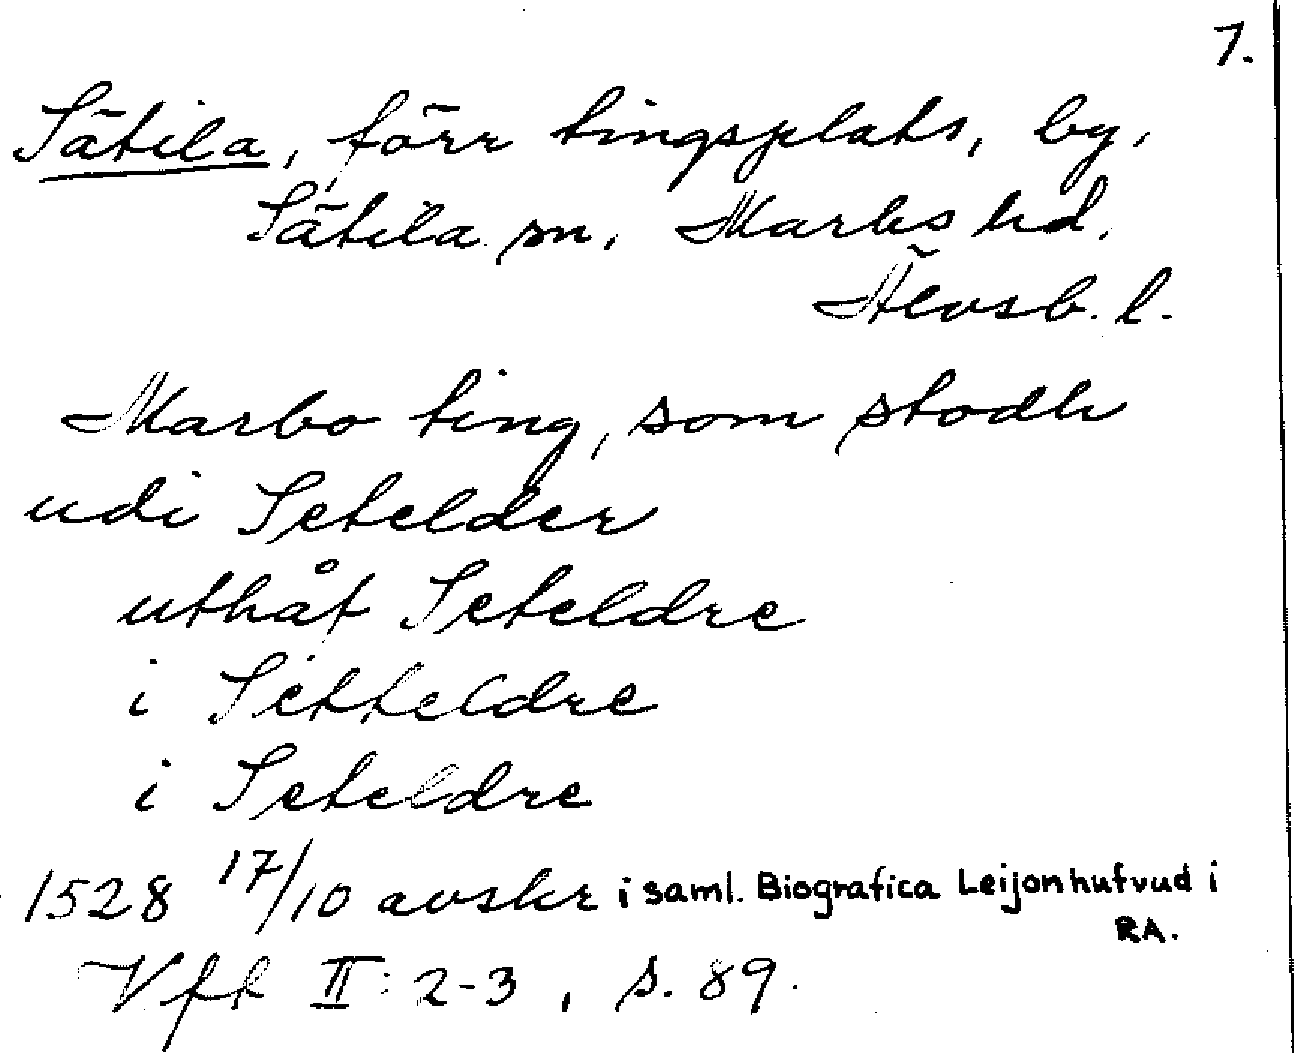 7.
Sätila, förr tingsplats, by,
Sätila sn, Marks hd,
Älvsb. l.
Marbo ting, som stodh
udi Setelder
uthåf Seteldre
i Setteldre
i Seteldre
1528 17/10 avskr i saml. Biografica Leijonhufvud i
RA.
Vft II: 2-3, s. 89.